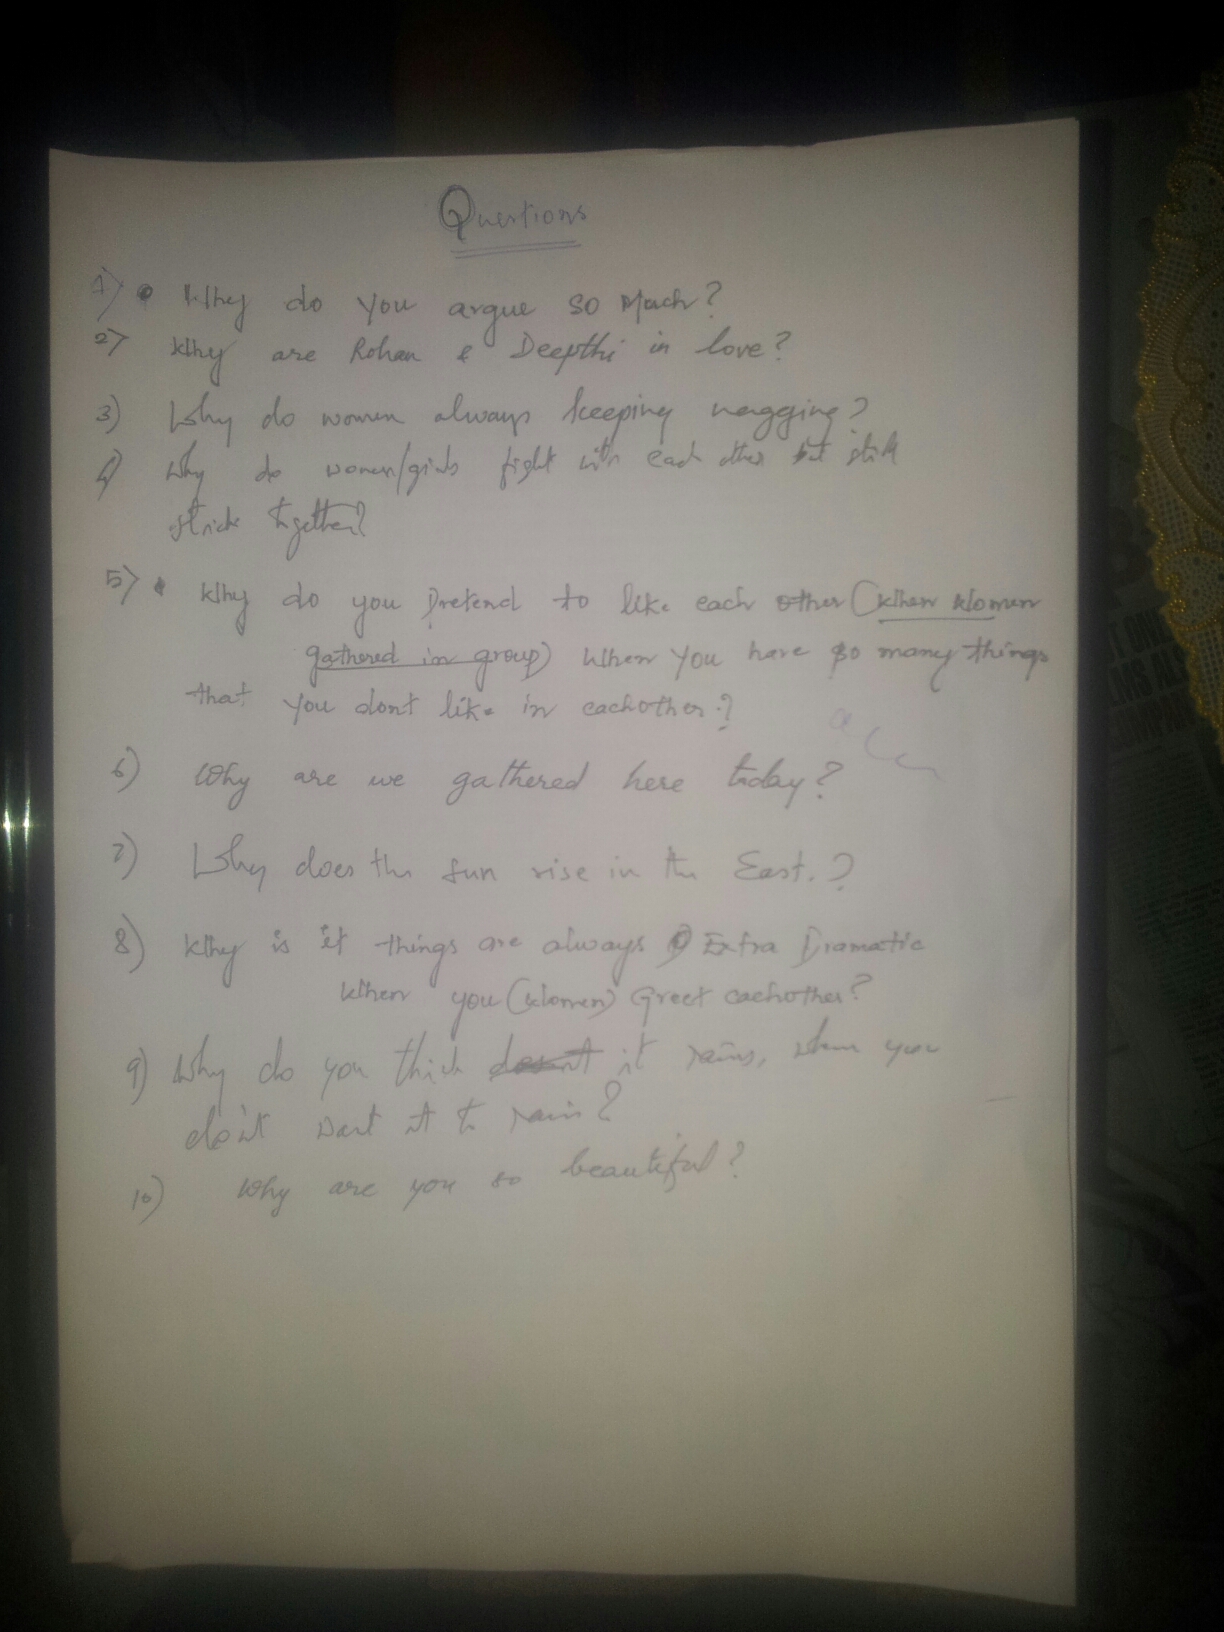 Questions
1) Why do you argue so Much?
2) Why are Rohan & Deepthi in love?
3) Why do women always keeping nagging?
4) Why do women/girls fight with each other but still
stick together?
5) Why do you Pretend to like each other (When Women
gathered in group) When you have so many things
that you dont like in eachother.?
6) Why are we gathered here today?
7) Why does the sun rise in the East.?
8) Why is it things are always Extra Dramatic
When you (Women) Greet eachother?
9) Why do you think it rains, when you
don't want it to rain?
10) Why are you so beautiful?